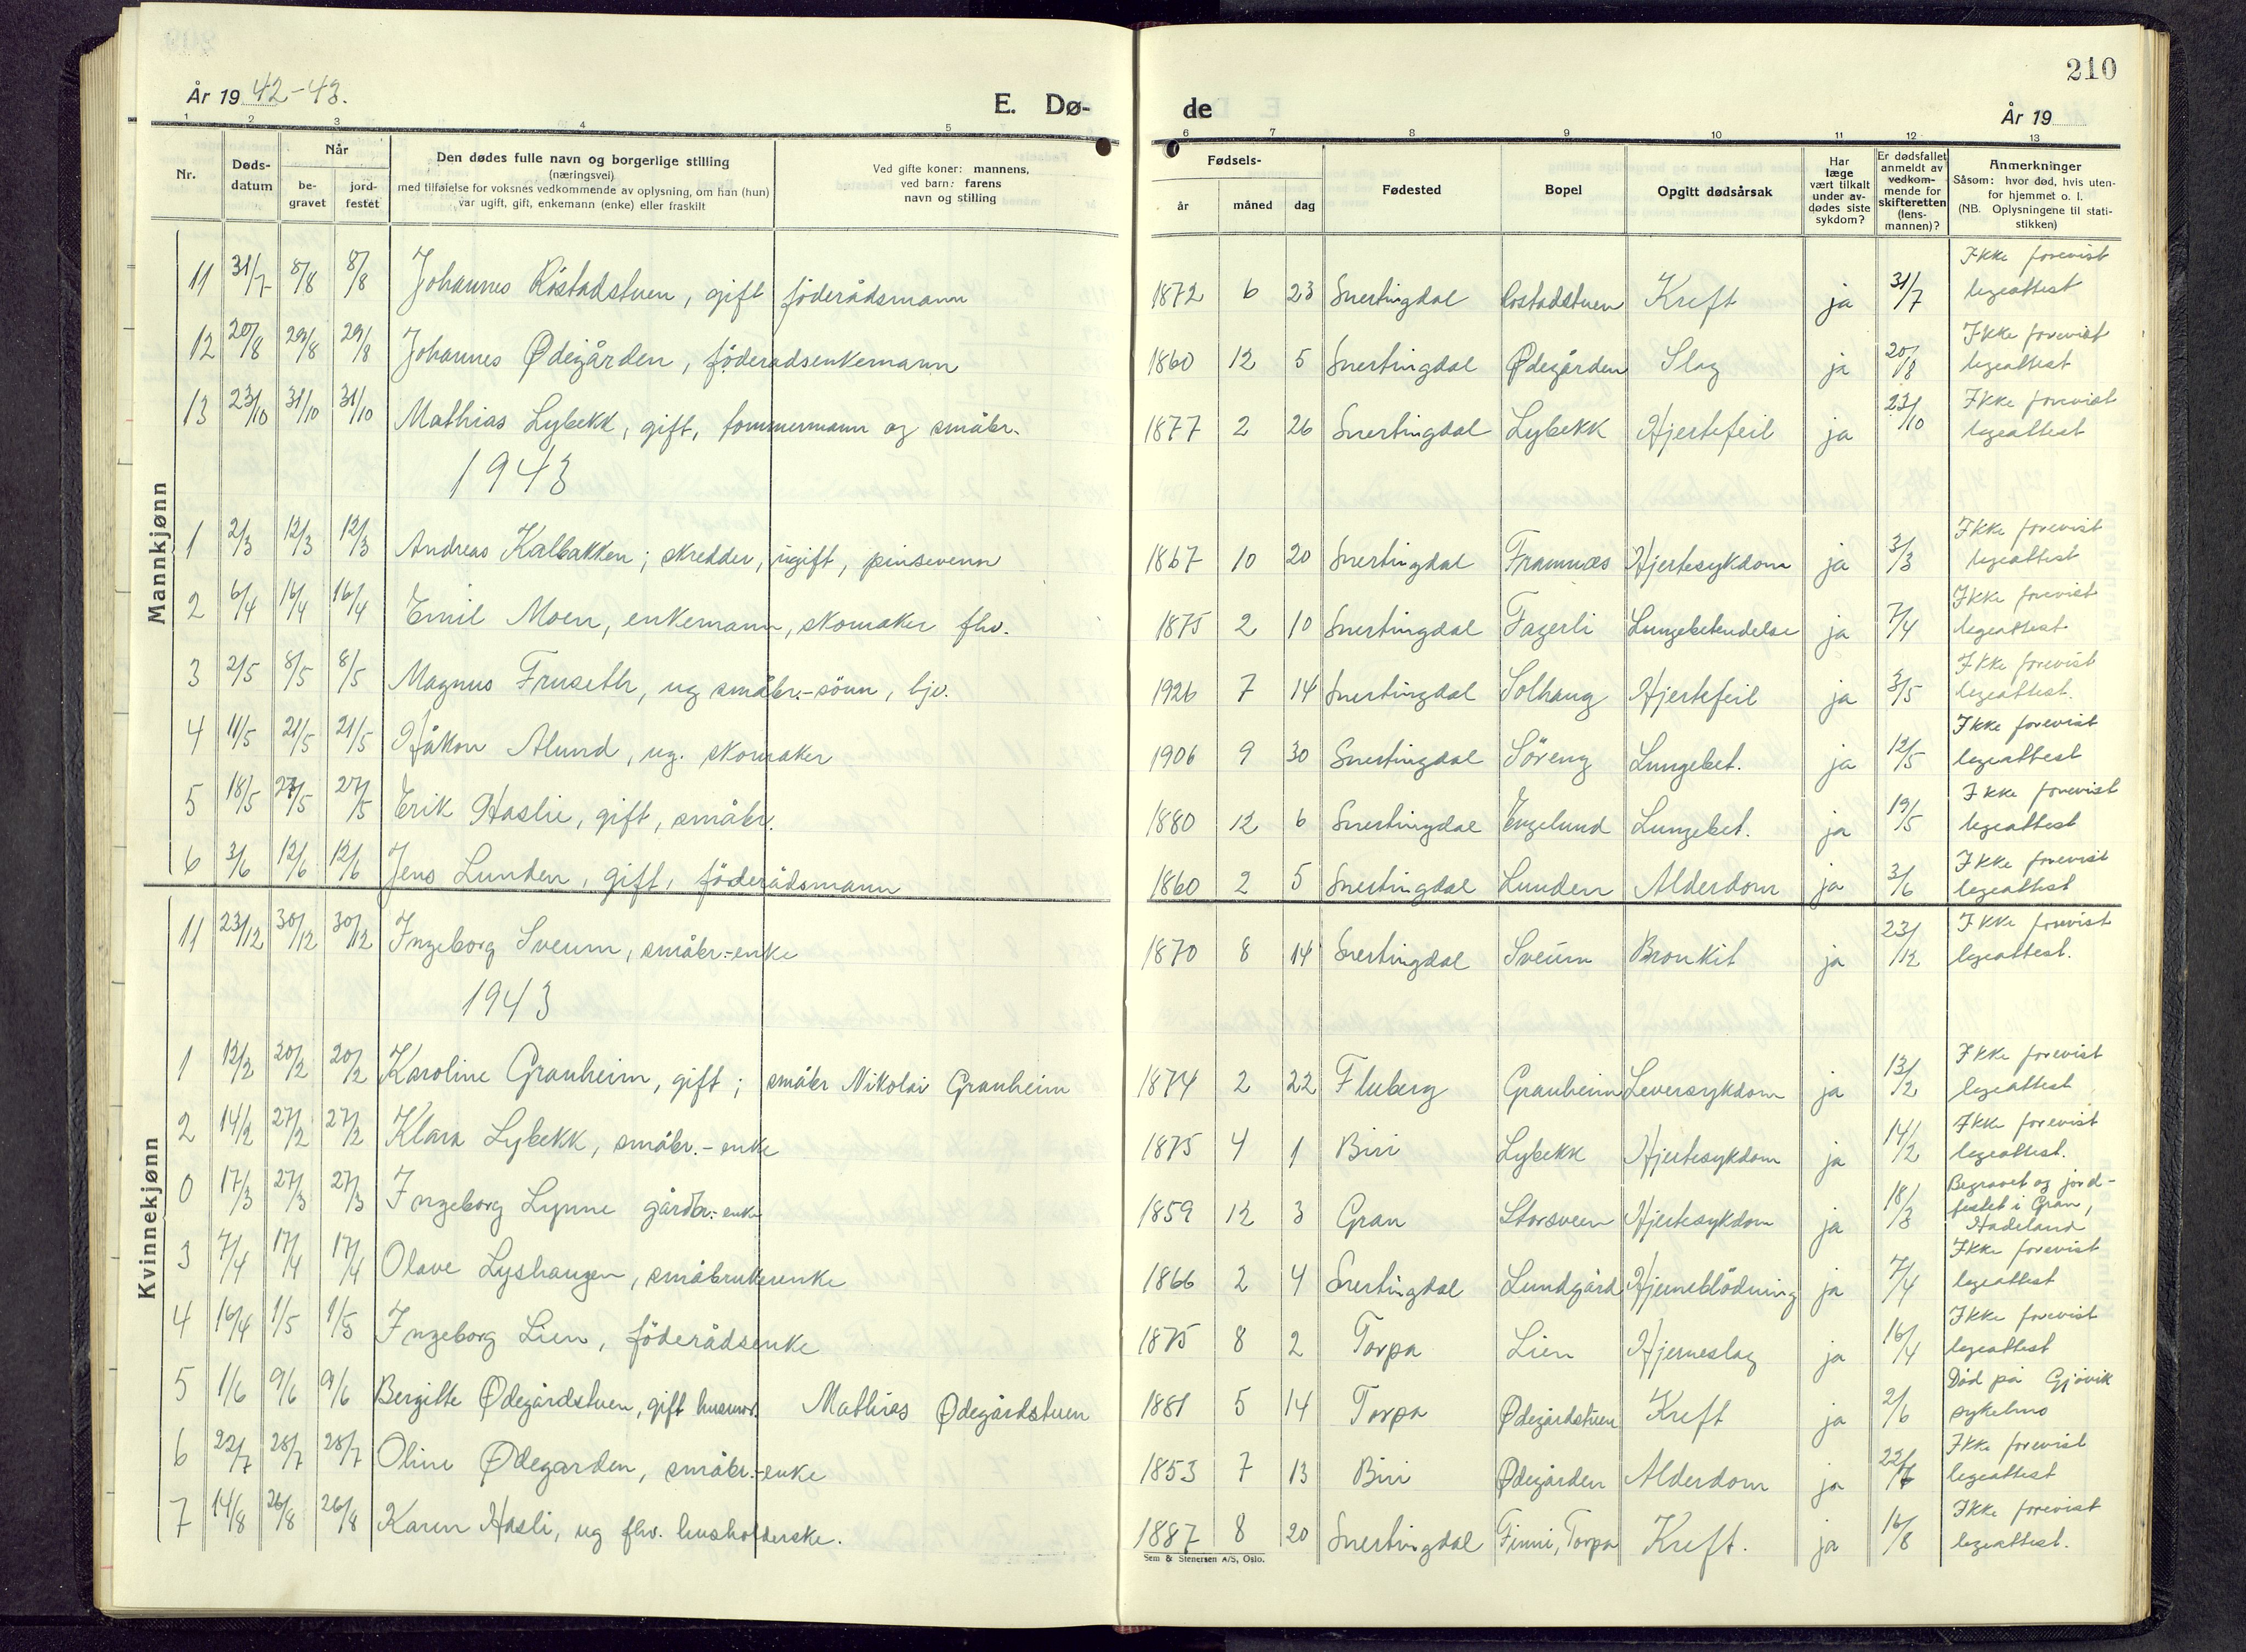 År 1942-43.
E. Dø-
de
210
År 19
1 2 3 4 5 6 7 8 9 10 11 12 13
Nr.
Døds-
datum
Når
be-
gravet
jord-
festet
Den dødes fulle navn og borgerlige stilling
(næringsvei)
med tilføielse for voksnes vedkommende av oplysning, om han (hun)
var ugift, gift, enkemann (enke) eller fraskilt
Ved gifte koner: mannens,
ved barn: farens
navn og stilling
Fødsels-
år måned dag
Fødested
Bopel
Opgitt dødsårsak
Har
læge
vært tilkalt
under av-
dødes siste
sykdom?
Er dødsfallet
anmeldt av
vedkom-
mende for
skifteretten
(lens-
mannen)?
Anmerkninger
Såsom: hvor død, hvis uten-
for hjemmet o. l.
(NB. Oplysningene til stati-
stikken)
Mannkjønn
11 31/7 8/8 8/8 Johannes Röstadstuen, gift föderådsmann 1872 6 23 Snertingdal Rostadstuen Kreft ja 31/7 Ikke forevist legeattest
12 20/8 29/8 29/8 Johannes Ødegården, föderadsenkemann 1860 12 5 Snertingdal Ødegården Slag ja 20/8 Ikke forevist legeattest
13 23/10 31/10 31/10 Mathias Lybekk, gift, tommermann og småbr. 1877 2 26 Snertingdal Lybekk Hjertefeil ja 23/10 Ikke forevist legeattest
1943
1 2/3 12/3 12/3 Andreas Kalbakken; skredder, ugift, pinsevenn 1867 10 20 Snertingdal Framnæs Hjertesykdom ja 3/3 Ikke forevist legeattest
2 6/4 16/4 16/4 Emil Moen, enkemann, skomaker fhv. 1875 2 10 Snertingdal Fagerli Lungebetendelse ja 7/4 Ikke forevist legeattest
3 2/5 8/5 8/5 Magnus Fruseth, ug småbr.-sönn, hjv. 1926 7 14 Snertingdal Solhaug Hjertefeil ja 3/5 Ikke forevist legeattest.
4 11/5 21/5 21/5 Håkon Alund, ug. skomaker 1906 9 30 Snertingdal Söreng Lungebet. ja 12/5 Ikke forevist legeattest
5 18/5 27/5 27/5 Erik Haslie, gift, småbr. 1880 12 6 Snertingdal Engelund Lungebet. ja 19/5 Ikke forevist legeattest
6 3/6 12/6 12/6 Jens Lunden, gift, föderådsmann 1860 2 5 Snertingdal Lunden Alderdom ja 3/6 Ikke forevist legeattest
Kvinnekjønn
11 23/12 30/12 30/12 Ingeborg Sveum, småbr.-enke 1870 8 14 Snertingdal Sveum Bronkit ja 23/12 Ikke forevist legeattest.
1943
1 12/2 20/2 20/2 Karoline Granheim, gift; småbr Nikolai Granheim 1874 2 22 Fluberg Granheim Leversykdom ja 13/2 Ikke forevist legeattest
2 14/2 27/2 27/2 Klara Lybekk, småbr.-enke 1875 4 1 Biri Lybekk Hjertesykdom ja 14/2 Ikke forevist legeattest.
0 17/3 27/3 27/3 Ingeborg Lynne gårdbr.-enke 1859 12 3 Gran Storsveen Hjertesykdom ja 18/3 Begravet og jord-festet i Gran, Hadeland
3 7/4 17/4 17/4 Olave Lyshaugen, småbrukerenke 1866 2 4 Snertingdal Lundgård Hjerneblödning ja 7/4 Ikke forevist legeattest
4 16/4 1/5 1/5 Ingeborg Lien, föderådsenke 1875 8 2 Torpa Lien Hjerneslag ja 16/4 Ikke forevist legeattest
5 1/6 9/6 9/6 Bergitte Ødegårdstuen, gift husmor. Mathias Ødegårdstuen 1881 5 14 Torpa Ødegårdstuen Kreft ja 2/6 Död på Gjövik sykehus
6 22/7 28/7 28/7 Oline Ødegarden, småbr.-enke 1853 7 13 Biri Ødegården Alderdom ja 22/7 Ikke forevist legeattest
7 14/8 26/8 26/8 Karen Hasli, ug fhv. husholderske. 1887 8 20 Snertingdal Finni, Torpa Kreft. ja 16/8 Ikke forevist legeattest.
Sem & Stenersen A/S, Oslo.